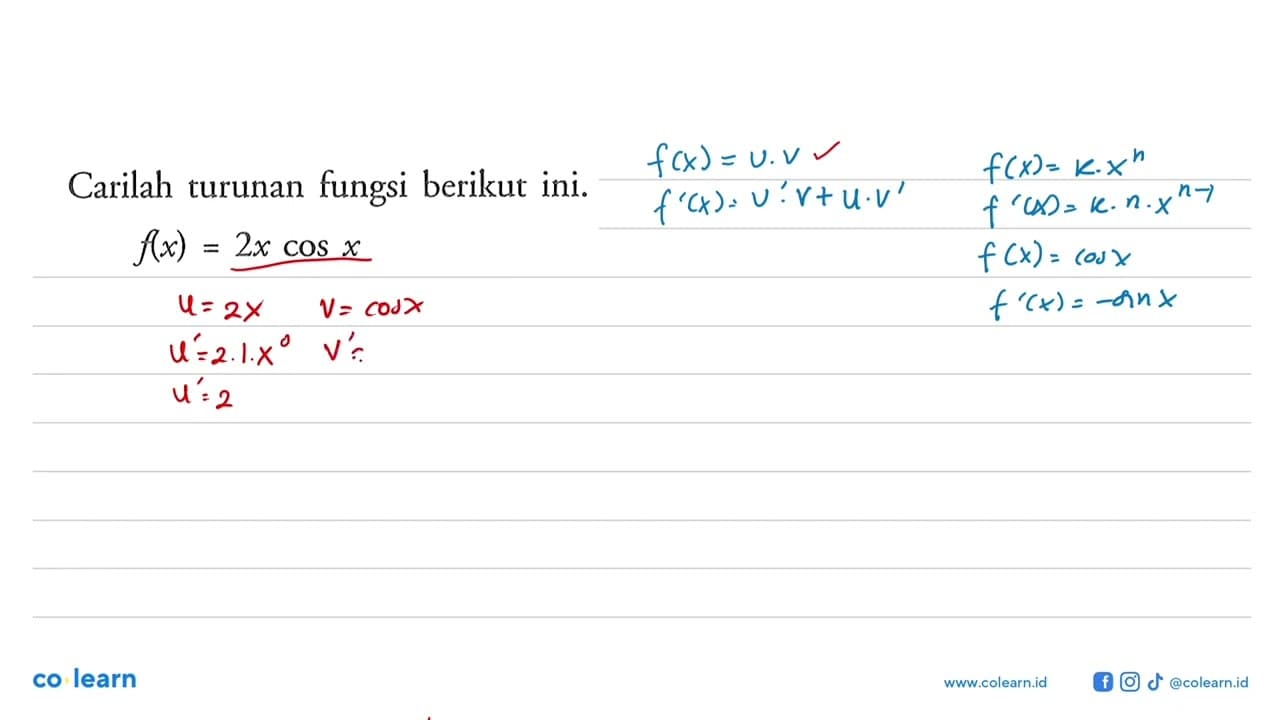 Carilah turunan fungsi berikut ini.
f(x) = 2x cos x
u = 2x v = cos x
u' = 2.1.x⁰ v' =
u' = 2
f(x) = u.v ✓
f'(x) = u'.v + u.v'
f(x) = k.xⁿ
f'(x) = k.n.xⁿ⁻¹
f(x) = cos x
f'(x) = -sin x
co learn
www.colearn.id @colearn.id